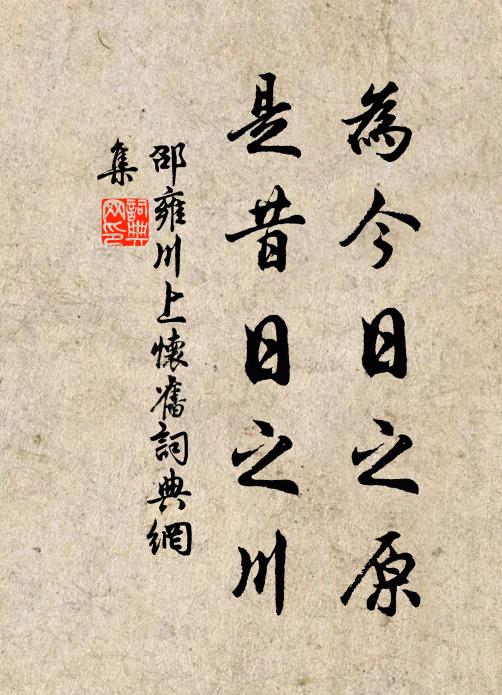 為今日之原
是昔日之川
邵雍川上懷舊詞典網
集
詞典
网印